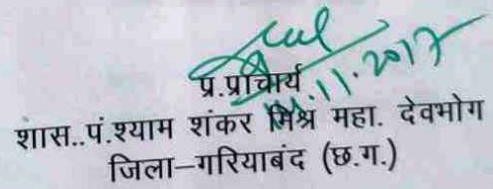 11.2017
प्र.प्राचार्य
शास..पं.श्याम शंकर मिश्र महा. देवभोग
जिला–गरियाबंद (छ.ग.)